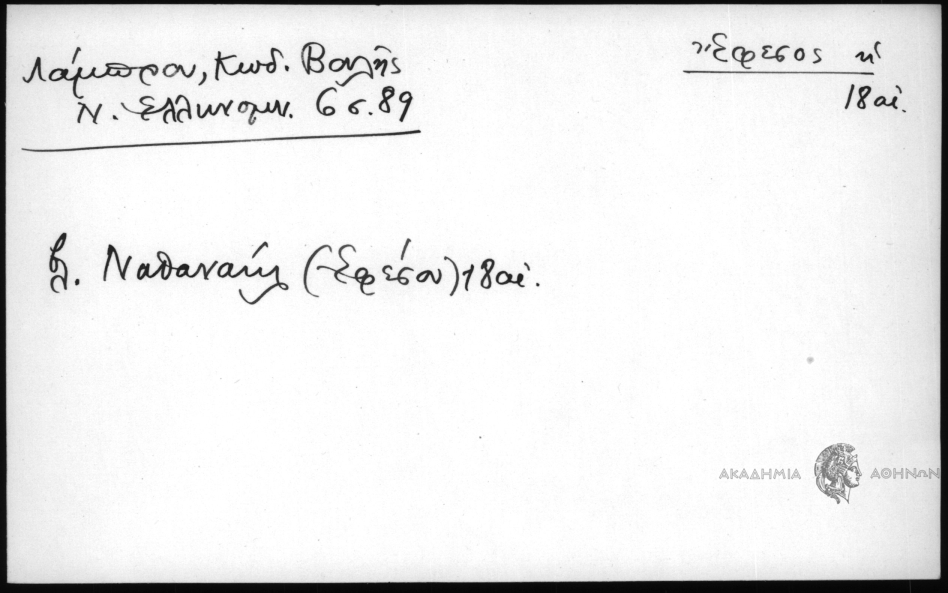 Λάμπρου, Κωδ. Βουλῆς
Ν. Ἑλληνομν. 6 σ. 89
Ἔφεσος ἡ
18 αἰ.
βλ. Ναθαναήλ (Ἐφέσου) 18 αἰ.
ΑΚΑΔΗΜΙΑ ΑΘΗΝΩΝ